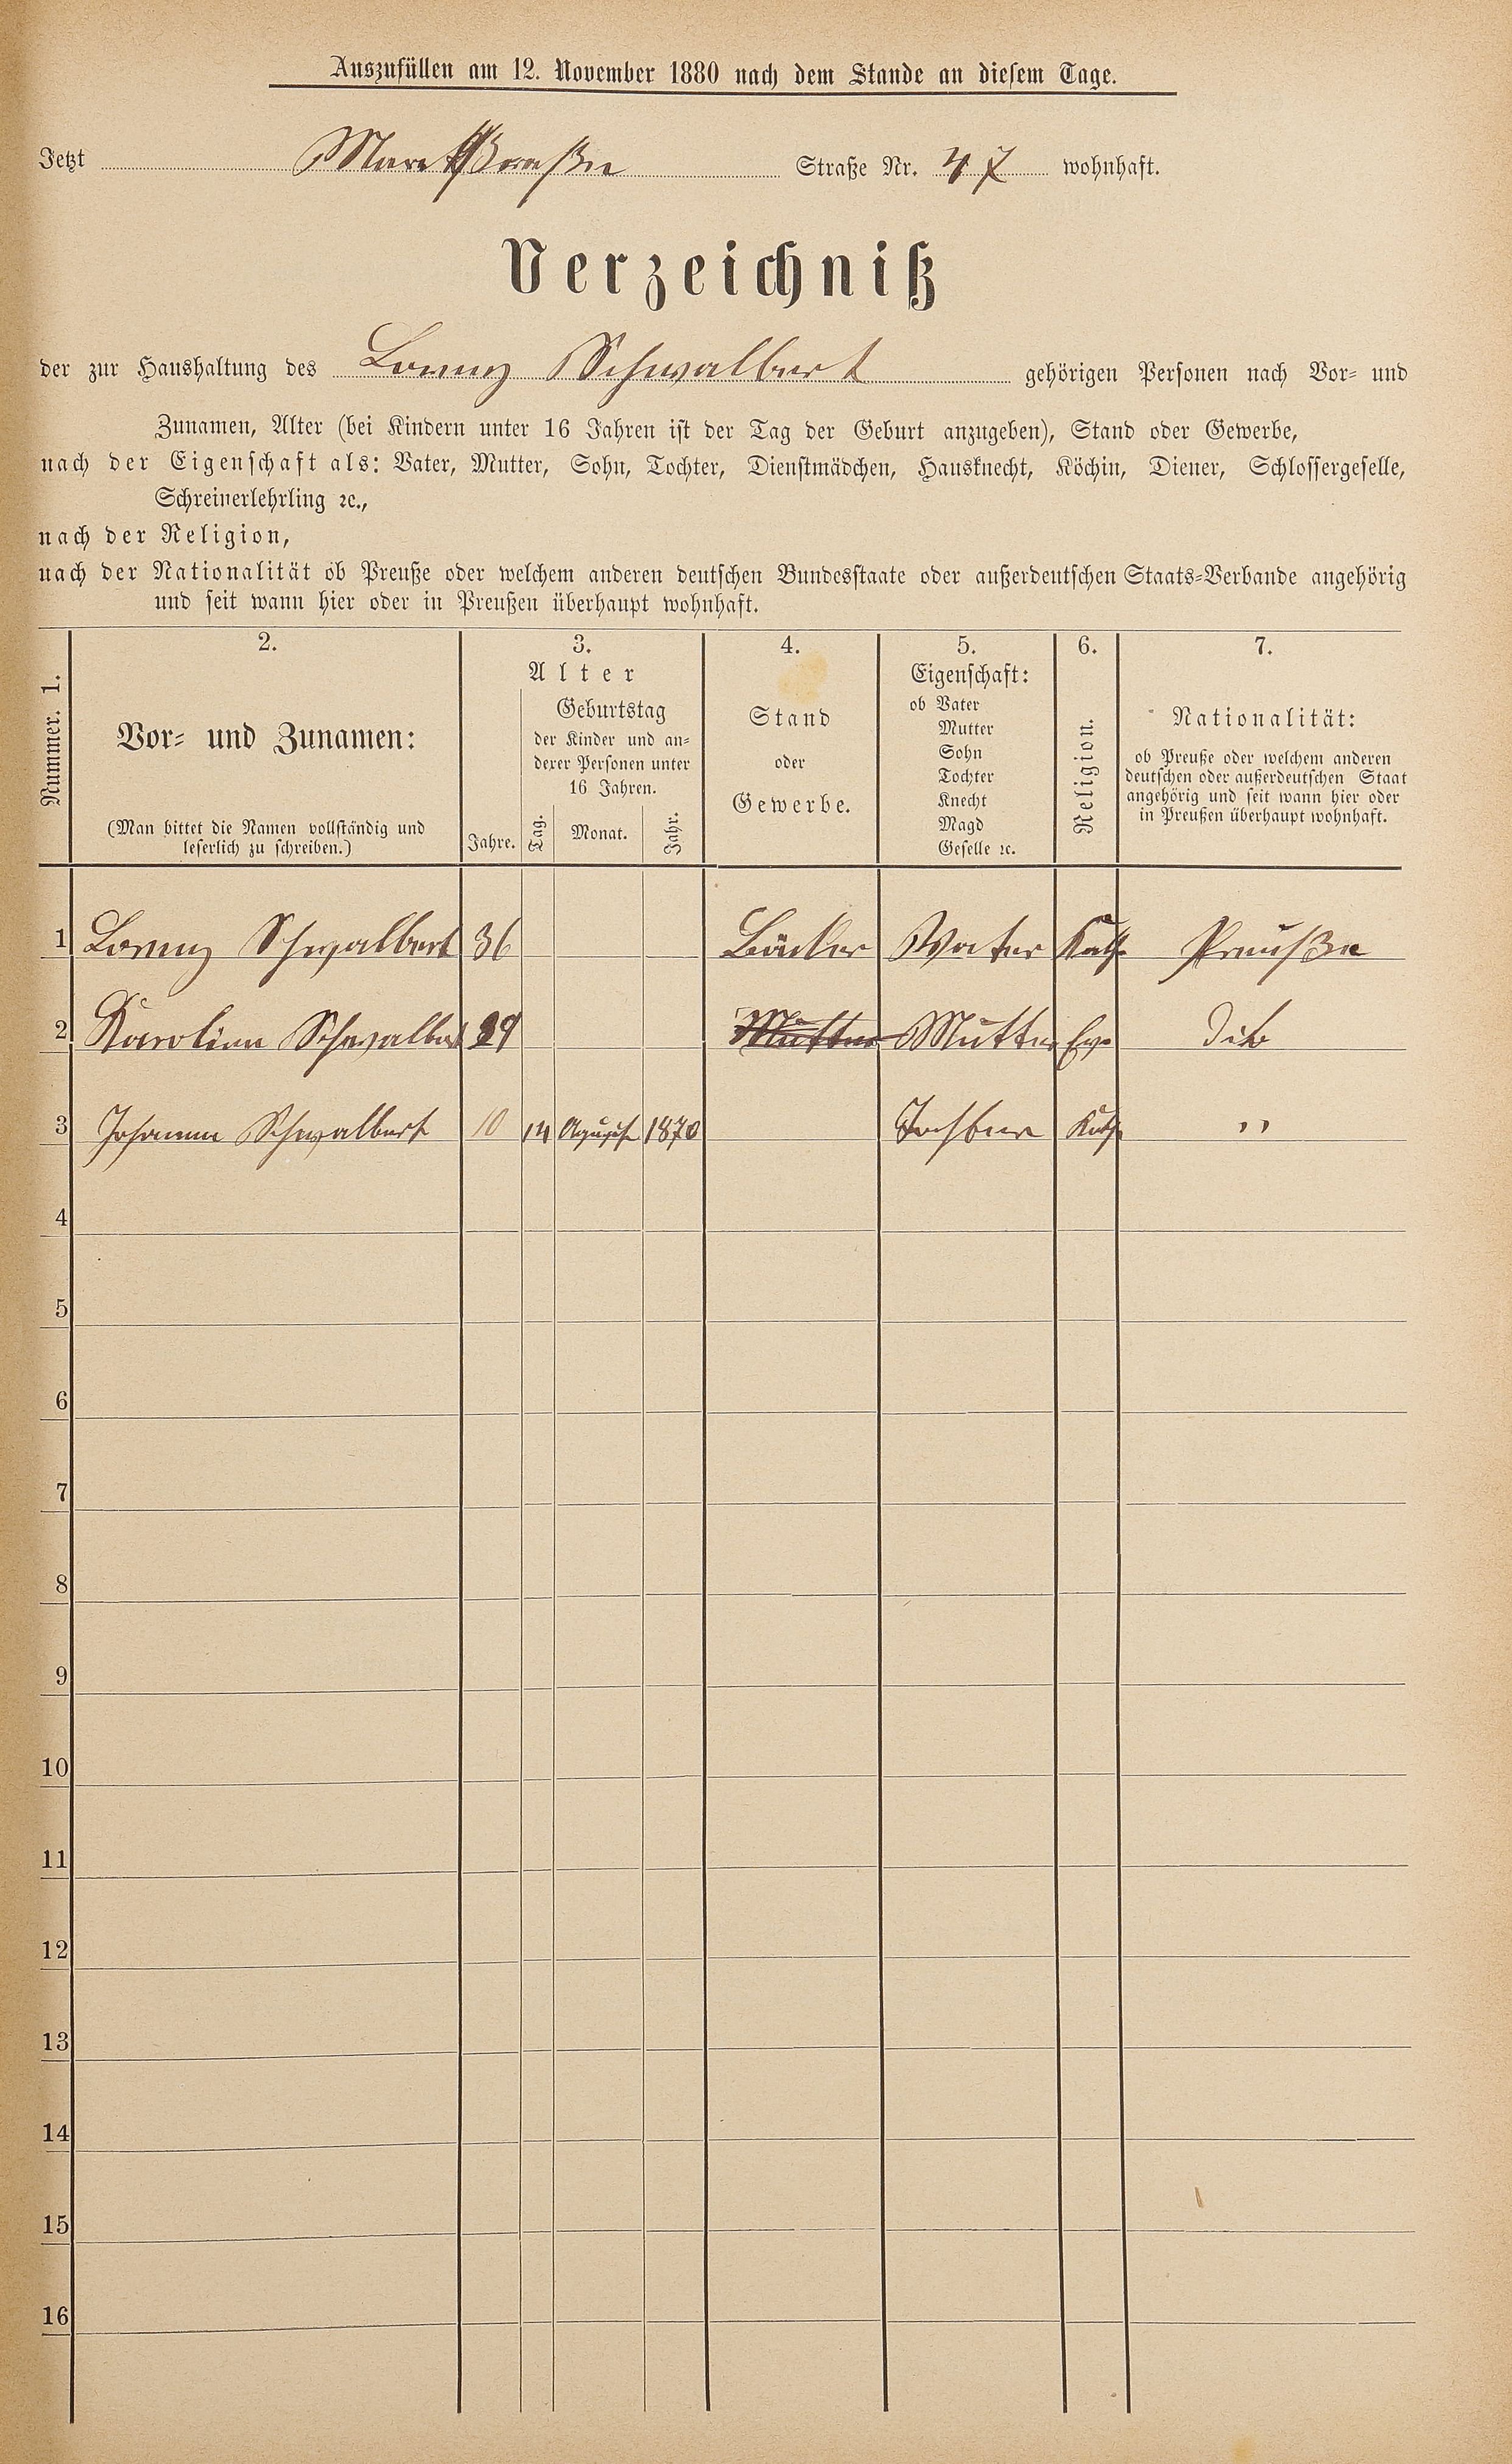 Auszufüllen am 12. November 1880 nach dem Stande an diesem Tage.
Jetzt Marktstraße Straße Nr. 47 wohnhaft.
Verzeichniß
der zur Haushaltung des Lorenz Schwalbert gehörigen Personen nach Vor- und
Zunamen, Alter (bei Kindern unter 16 Jahren ist der Tag der Geburt anzugeben), Stand oder Gewerbe,
nach der Eigenschaft als: Vater, Mutter, Sohn, Tochter, Dienstmädchen, Hausknecht, Köchin, Diener, Schlossergeselle,
Schreinerlehrling ꝛc.,
nach der Religion,
nach der Nationalität ob Preuße oder welchem anderen deutschen Bundesstaate oder außerdeutschen Staats-Verbande angehörig
und seit wann hier oder in Preußen überhaupt wohnhaft.
Nummer. 1.
2.
Vor- und Zunamen:
(Man bittet die Namen vollständig und
leserlich zu schreiben.)
3.
Alter
Jahre.
Geburtstag
der Kinder und an-
derer Personen unter
16 Jahren.
Tag.
Monat.
Jahr.
4.
Stand
oder
Gewerbe.
5.
Eigenschaft:
ob Vater
Mutter
Sohn
Tochter
Knecht
Magd
Geselle ꝛc.
6.
Religion.
7.
Nationalität:
ob Preuße oder welchem anderen
deutschen oder außerdeutschen Staat
angehörig und seit wann hier oder
in Preußen überhaupt wohnhaft.
1 Lorenz Schwalbert 36 Bäcker Vater Kath Preuße
2 Karolina Schwalbert 29 Mutter Mutter Ev Dito
3 Johanna Schwalbert 10 14 August 1870 Tochter Kath "
4
5
6
7
8
9
10
11
12
13
14
15
16